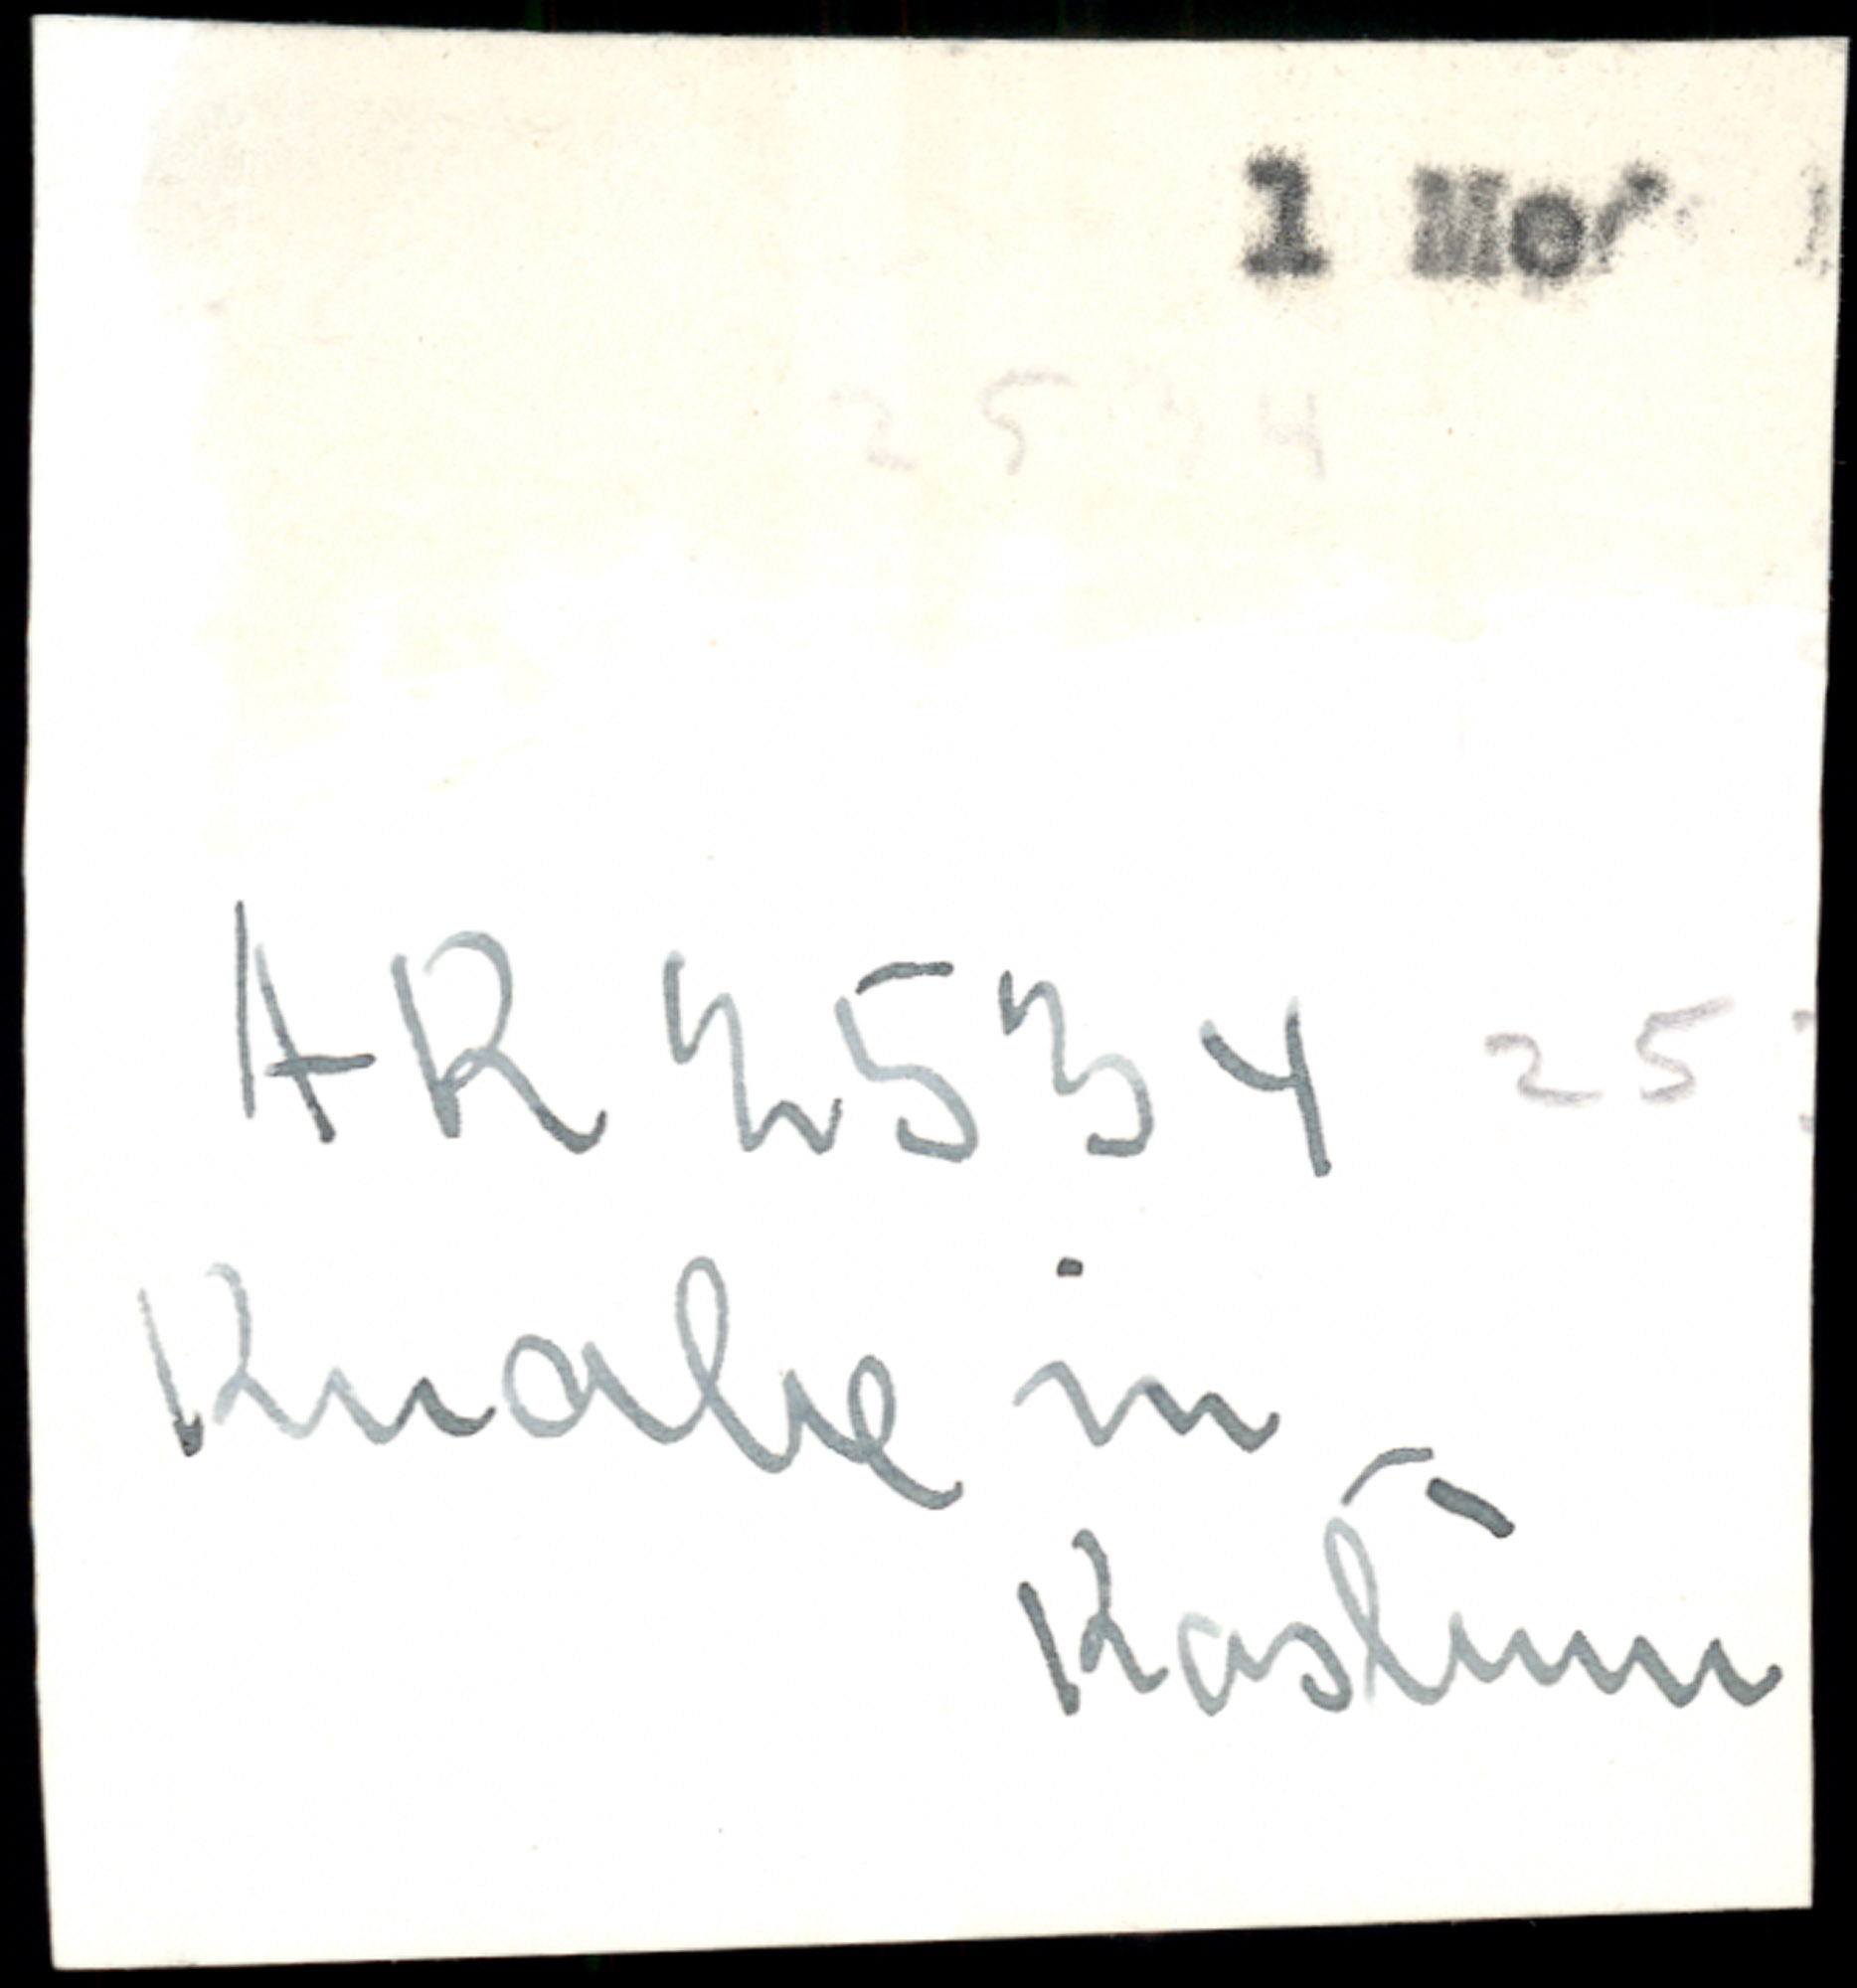 1
25 4
AR 2534 25
Knabe in
Kostüm